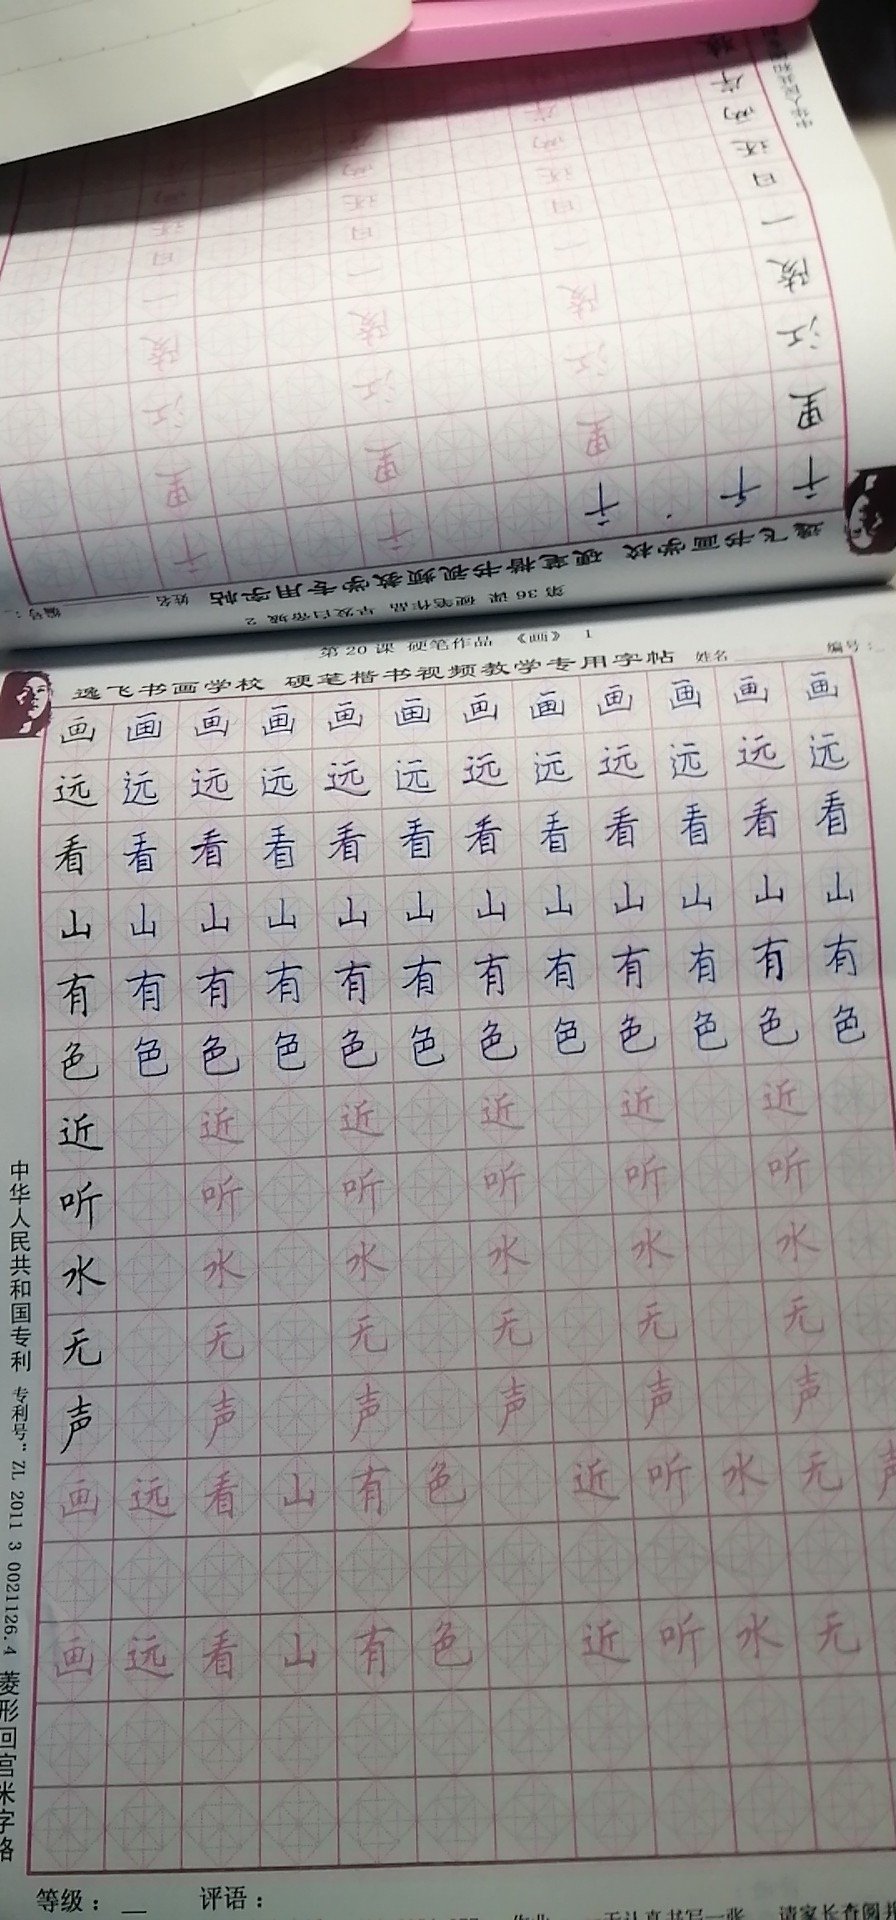 第20课 硬笔作品 《画》 1
逸飞书画学校 硬笔楷书视频教学专用字帖 姓名 编号：
画画画画画画画画画画画画
远远远远远远远远远远远远
看看看看看看看看看看看看
山山山山山山山山山山山山
有有有有有有有有有有有有
色色色色色色色色色色色色
近 近 近 近 近 近
听 听 听 听 听 听
水 水 水 水 水 水
无 无 无 无 无 无
声 声 声 声 声 声
画远看山有色 近听水无声
画远看山有色 近听水无
等级： 评语：
中华人民共和国专利 专利号：ZL 2011 3 0021126.4 菱形回宫米字格
第36课 硬笔作品 早发白帝城 2
逸飞书画学校 硬笔楷书视频教学专用字帖 姓名 编号：
千千 千 千 千
里 里 里 里
江 江 江 江
陵 陵 陵 陵
一 一 一 一
日 日 日 日
还 还 还 还
两 两 两 两
岸 岸